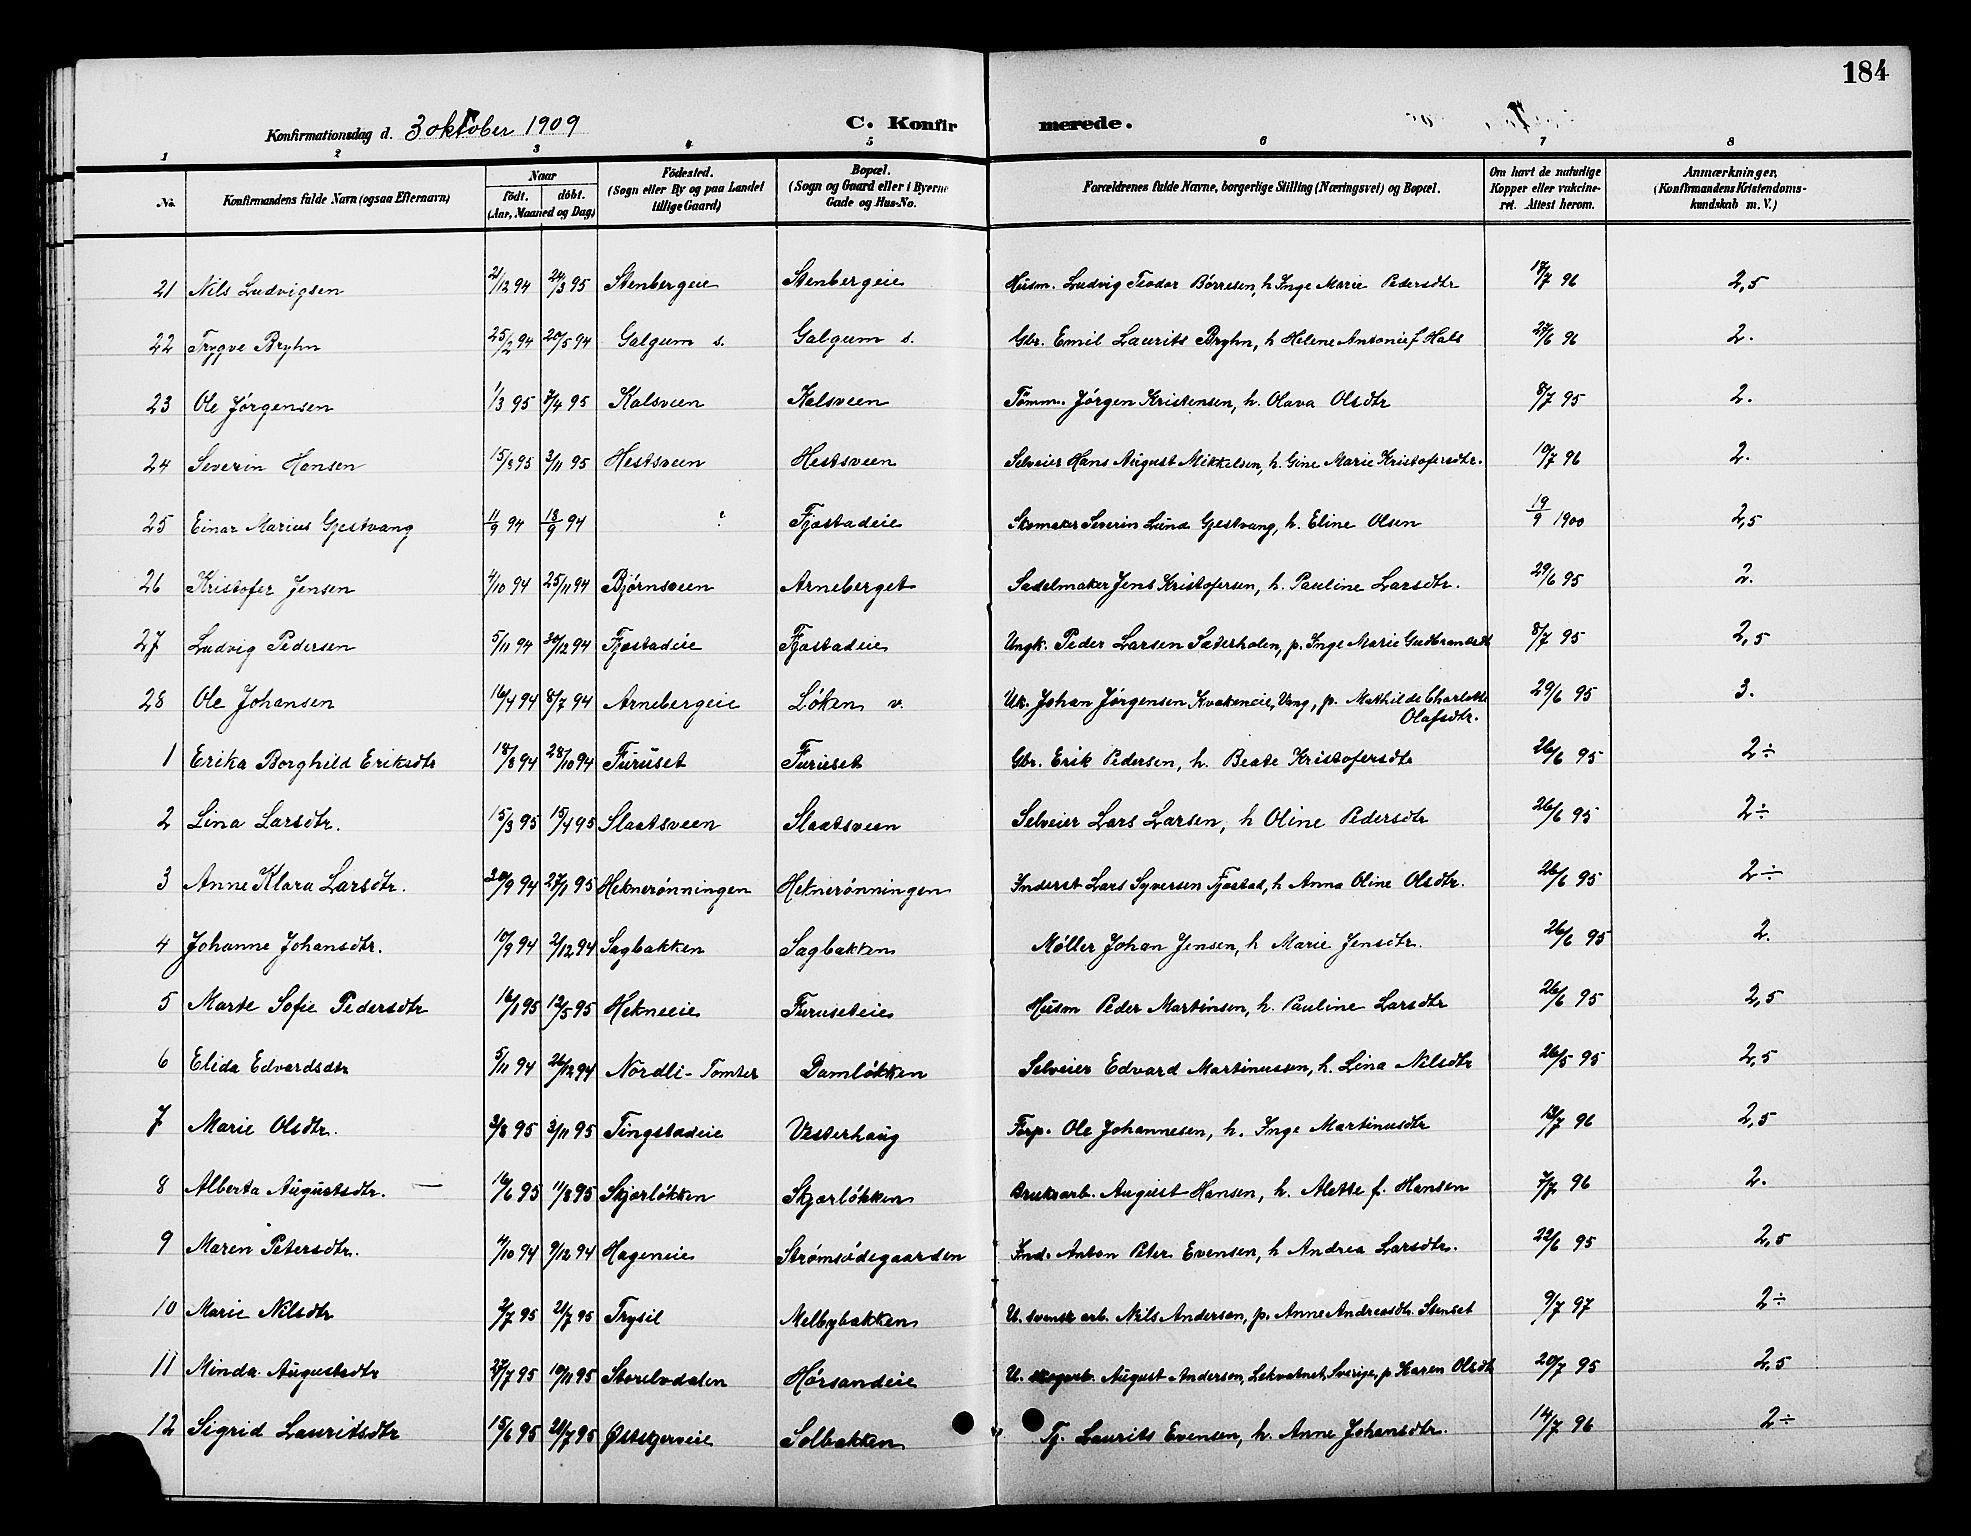 184
Konfirmationsdag d. 3 oktober 1909 C. Konfirmerede.
1 2 3 4 5 6 7 8
No. Konfirmandens fulde Navn (ogsaa Efternavn) Naar født. døbt. (Aar, Maaned og Dag) Födested. (Sogn eller By og paa Landet tillige Gaard) Bopæl. (Sogn og Gaard eller i Byerne Gade og Hus-No. Forældrenes fulde Navne, borgerlige Stilling (Næringsvei) og Bopæl. Om havt de naturlige Kopper eller vakcineret. Attest herom. Anmærkninger, (Konfirmandens Kristendomskundskab m. V.)
21 Nils Ludvigsen 21/12 94 24/3 95 Stenbergeie Stenbergeie Husm. Ludvig Teodor Børresen, h Inge Marie Pedersdtr 17/7 96 2,5
22 Trygve Bryhn 25/2 94 20/5 94 Galgum s. Galgum s. Gbr. Emil Laurits Bryhn, h Helene Antonie f Hals 27/6 96 2.
23 Ole Jørgensen 1/3 95 7/4 95 Kalsveen Kalsveen Tømm. Jørgen Kristensen, h. Olava Olsdtr 8/7 95 2.
24 Severin Hansen 15/8 95 3/11 95 Hestsveen Hestsveen Selveier Hans August Mikkelsen, h. Gine Marie Kristofersdtr. 10/7 96 2.
25 Einar Marius Gjestvang 11/9 94 18/9 94 ? Fjæstadeie Skomaker Severin Lund Gjestvang, h. Eline Olsen 19/9 1900 2,5
26 Kristofer Jensen 4/10 94 25/11 94 Bjørnsveen Arneberget Sadelmaker Jens Kristofersen, h. Pauline Larsdtr. 29/6 95 2.
27 Ludvig Pedersen 5/11 94 30/12 94 Fjæstadeie Fjæstadeie Ungk. Peder Larsen Sæterholen, p. Inge Marie Gudbrandsdtr 8/7 95 2,5
28 Ole Johansen 16/4 94 8/7 94 Arnebergeie Løken v. Uk. Johan Jørgensen Kvakeneie, Vang, p. Mathilde Charlotte Olafsdtr. 29/6 95 3.
1 Erika Borghild Eriksdtr 18/8 94 28/10 94 Furuset Furuset Gbr. Erik Pedersen, h. Beate Kristofersdtr 26/6 95 2÷
2 Lina Larsdtr. 15/3 95 15/4 95 Slaatsveen Slaatsveen Selveier Lars Larsen, h Oline Pedersdtr 26/6 95 2÷
3 Anne Klara Larsdtr. 30/9 94 27/1 95 Heknerønningen Heknerønningen Inderst Lars Syversen Fjæstad, h Anna Oline Olsdtr. 26/6 95 2÷
4 Johanne Johansdtr. 10/9 94 2/12 94 Sagbakken Sagbakken Møller Johan Jensen, h Marie Jensdtr. 26/6 95 2.
5 Marte Sofie Pedersdtr 16/1 95 12/5 95 Hekneeie Furuseteie Husm Peder Martinsen, h. Pauline Larsdtr 26/6 95 2,5
6 Elida Edvardsdtr 5/11 94 26/12 94 Nordli-Tomter Damløkken Selveier Edvard Martinussen, h. Lina Nilsdtr 26/5 95 2,5
7 Marie Olsdtr. 3/8 95 3/11 95 Tingstadeie Vesterhaug Forp. Ole Johannesen, h. Inge Martinusdtr 13/7 96 2,5
8 Alberta Augustsdtr. — 16/6 95 11/8 95 Skjærløkken Skjærløkken Bruksarb. August Hansen, h. Alette f. Hansen 7/7 96 2.
9 Maren Petersdtr. 4/10 94 9/12 94 Hageneie Strømsødegaarden Ind. Anton Peter Evensen, h Andrea Larsdtr. 22/6 95 2,5
10 Marie Nilsdtr 2/7 95 21/7 95 Trysil Melbybakken U. svensk arb. Nils Andersen, p. Anne Andreasdtr. Stenset 9/7 97 2÷
11 Minda Augustsdtr 27/7 95 10/11 95 Storelvdalen Hørsandeie U. August Andersen, Lekvatnet, Sverige, p Karen Olsdtr 20/7 95 2,5
12 Sigrid Lauritsdtr 15/6 95 21/7 95 Østskjerveie Solbakken Tj. Laurits Evensen, h. Anne Johansdtr. 14/7 96 2÷